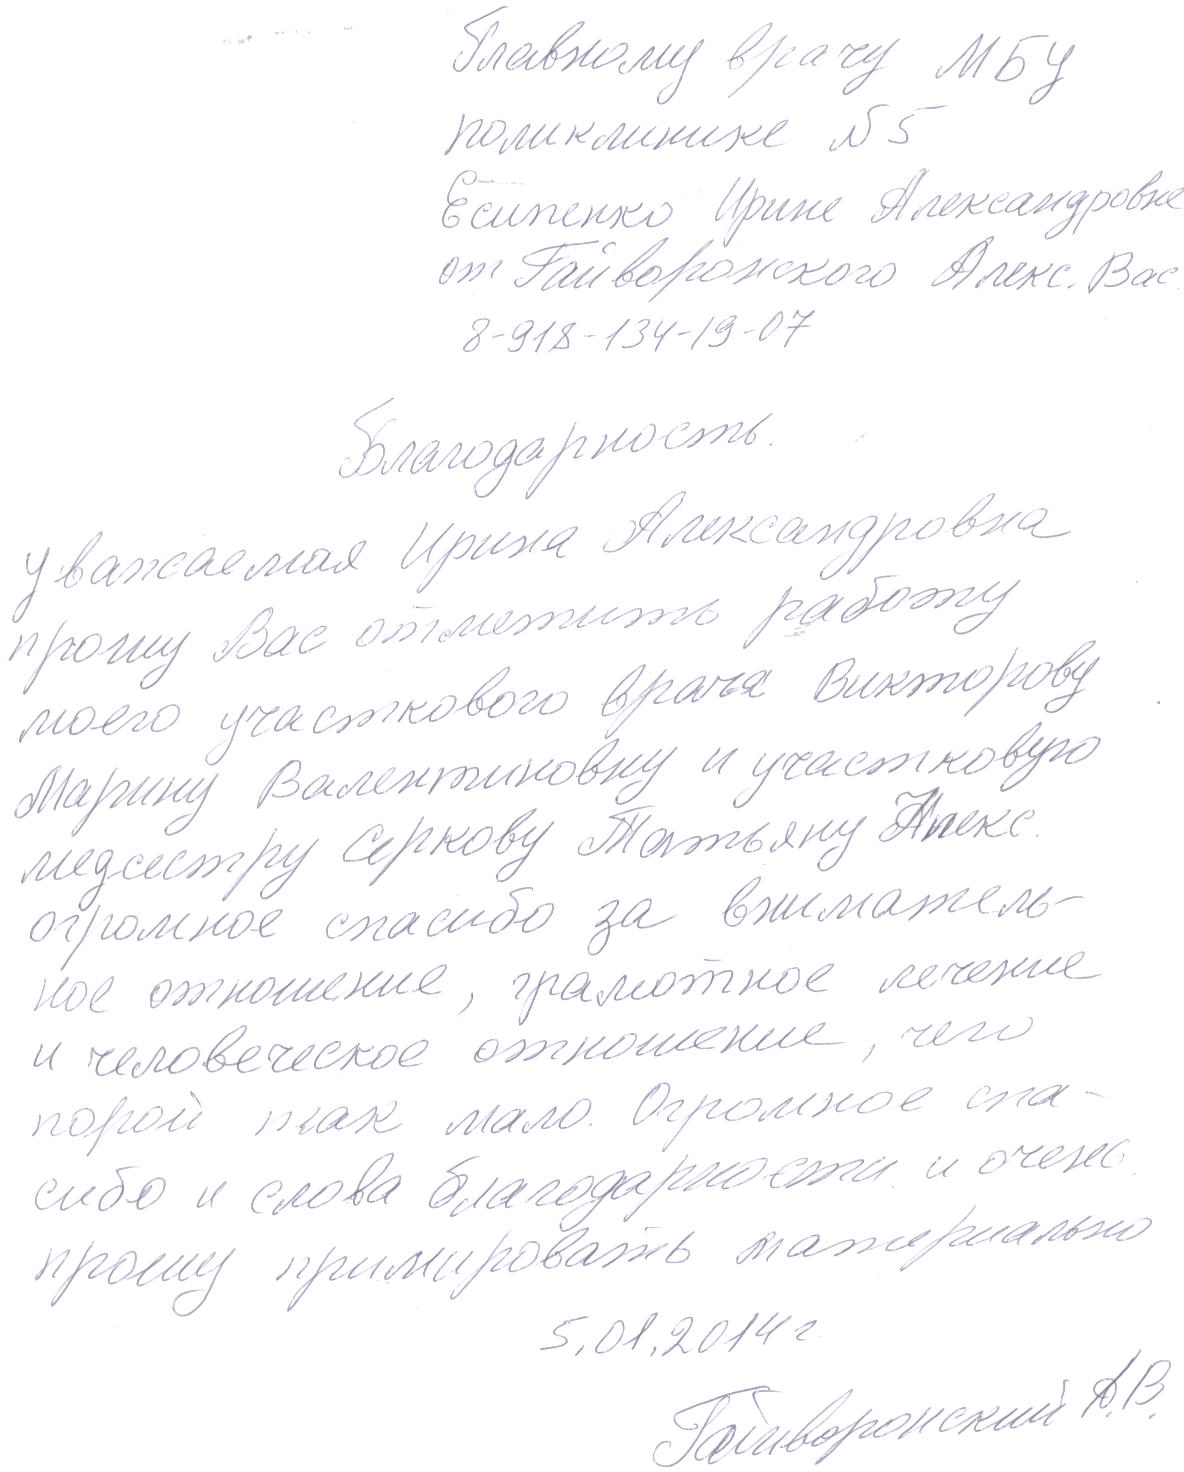 Главному врачу МБУ
поликлинике №5
Есипенко Ирине Александровне
от Гайворонского Алекс. Вас.
8-918-134-19-07
Благодарность.
Уважаемая Ирина Александровна
прошу Вас отметить работу
моего участкового врача Викторову
Марину Валентиновну и участковую
медсестру Серкову Татьяну Алекс.
огромное спасибо за вниматель-
ное отношение, грамотное лечение
и человеческое отношение, чего
порой так мало. Огромное спа-
сибо и слова благодарности и очень
прошу примировать материально
5.01.2014 г.
Гайворонский А.В.